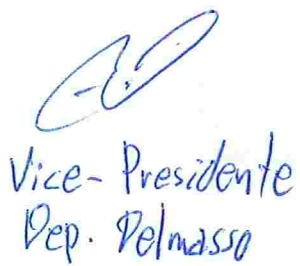 Vice-Presidente
Dep. Delmasso